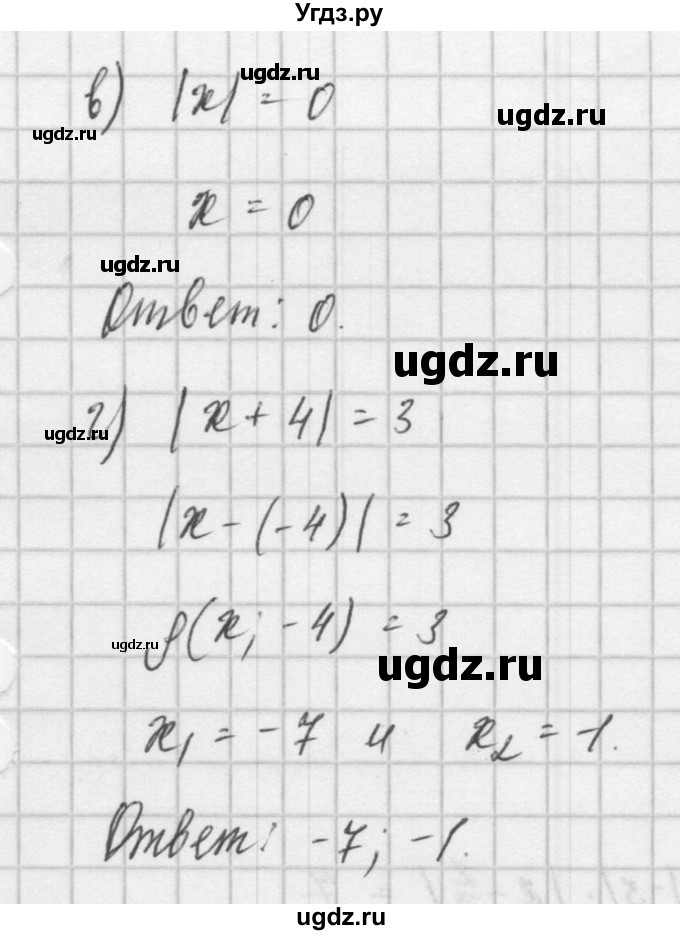 Угдз.ру
ugdz.ru
в) |x| = 0
ugdz.ru
ugdz.ru
x = 0
ugdz.ru
Ответ: 0.
ugdz.ru
г) |x + 4| = 3
ugdz.ru
|x - (-4)| = 3
ρ(x; -4) = 3
ugdz.ru
ugdz.ru
x₁ = -7 и x₂ = -1.
Ответ: -7; -1.
ugdz.ru